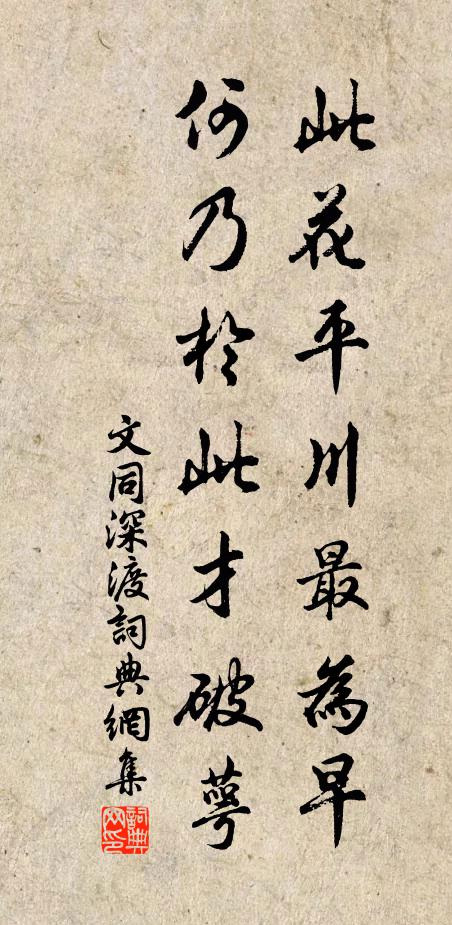 此花平川最為早
何乃於此才破萼
文同深渡詞典網集
詞典網印